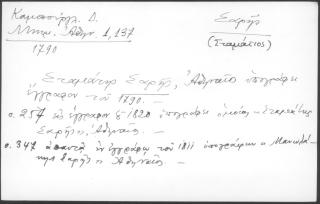 Καμπούρογλ. Δ.
Μνημ. Αθην. 1, 137
1790
Σαρῆς
(Σταμάτιος)
Σταμάτης Σαρῆς, Ἀθηναῖος ὑπογράφει
ἔγγραφον τοῦ 1790. —
σ. 257 εἰς ἔγγραφον 1820 ὑπογράφει ὁμοίως Σταμάτης
Σαρῆς, Ἀθηναῖος. —
σ. 347 ἐν ἐγγράφῳ τοῦ 1811 ὑπογράφων Μανωλά-
κης Σαρῆς Ἀθηναῖος. —